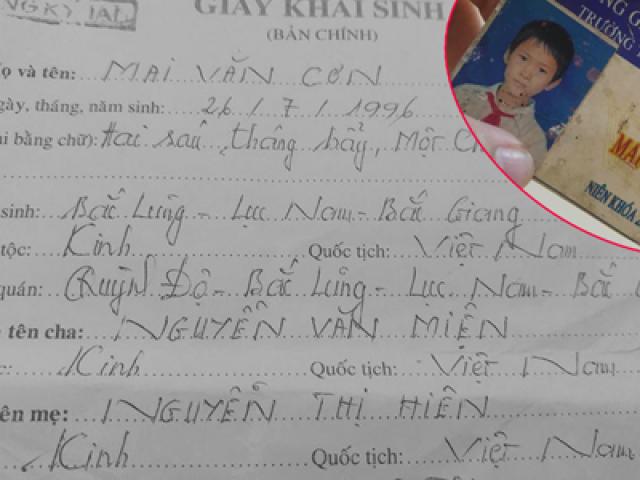 GIẤY KHAI SINH
(BẢN CHÍNH)
Họ và tên: MAI VĂN CƠN
Ngày, tháng, năm sinh: 26 / 7 / 1996
bằng chữ): Hai sáu, tháng bẩy, Một
sinh: Bắc Lũng - Lục Nam - Bắc Giang
tộc: Kinh Quốc tịch: Việt Nam
quán: Quỳn Độ - Bắc Lũng - Lục Nam - Bắc
tên cha: NGUYỄN VĂN MIỆN
Kinh Quốc tịch: Việt Nam
ên mẹ: NGUYỄN THỊ HIÊN
Kinh Quốc tịch: Việt Nam
TRƯỜNG
MAI
NIÊN KHÓA